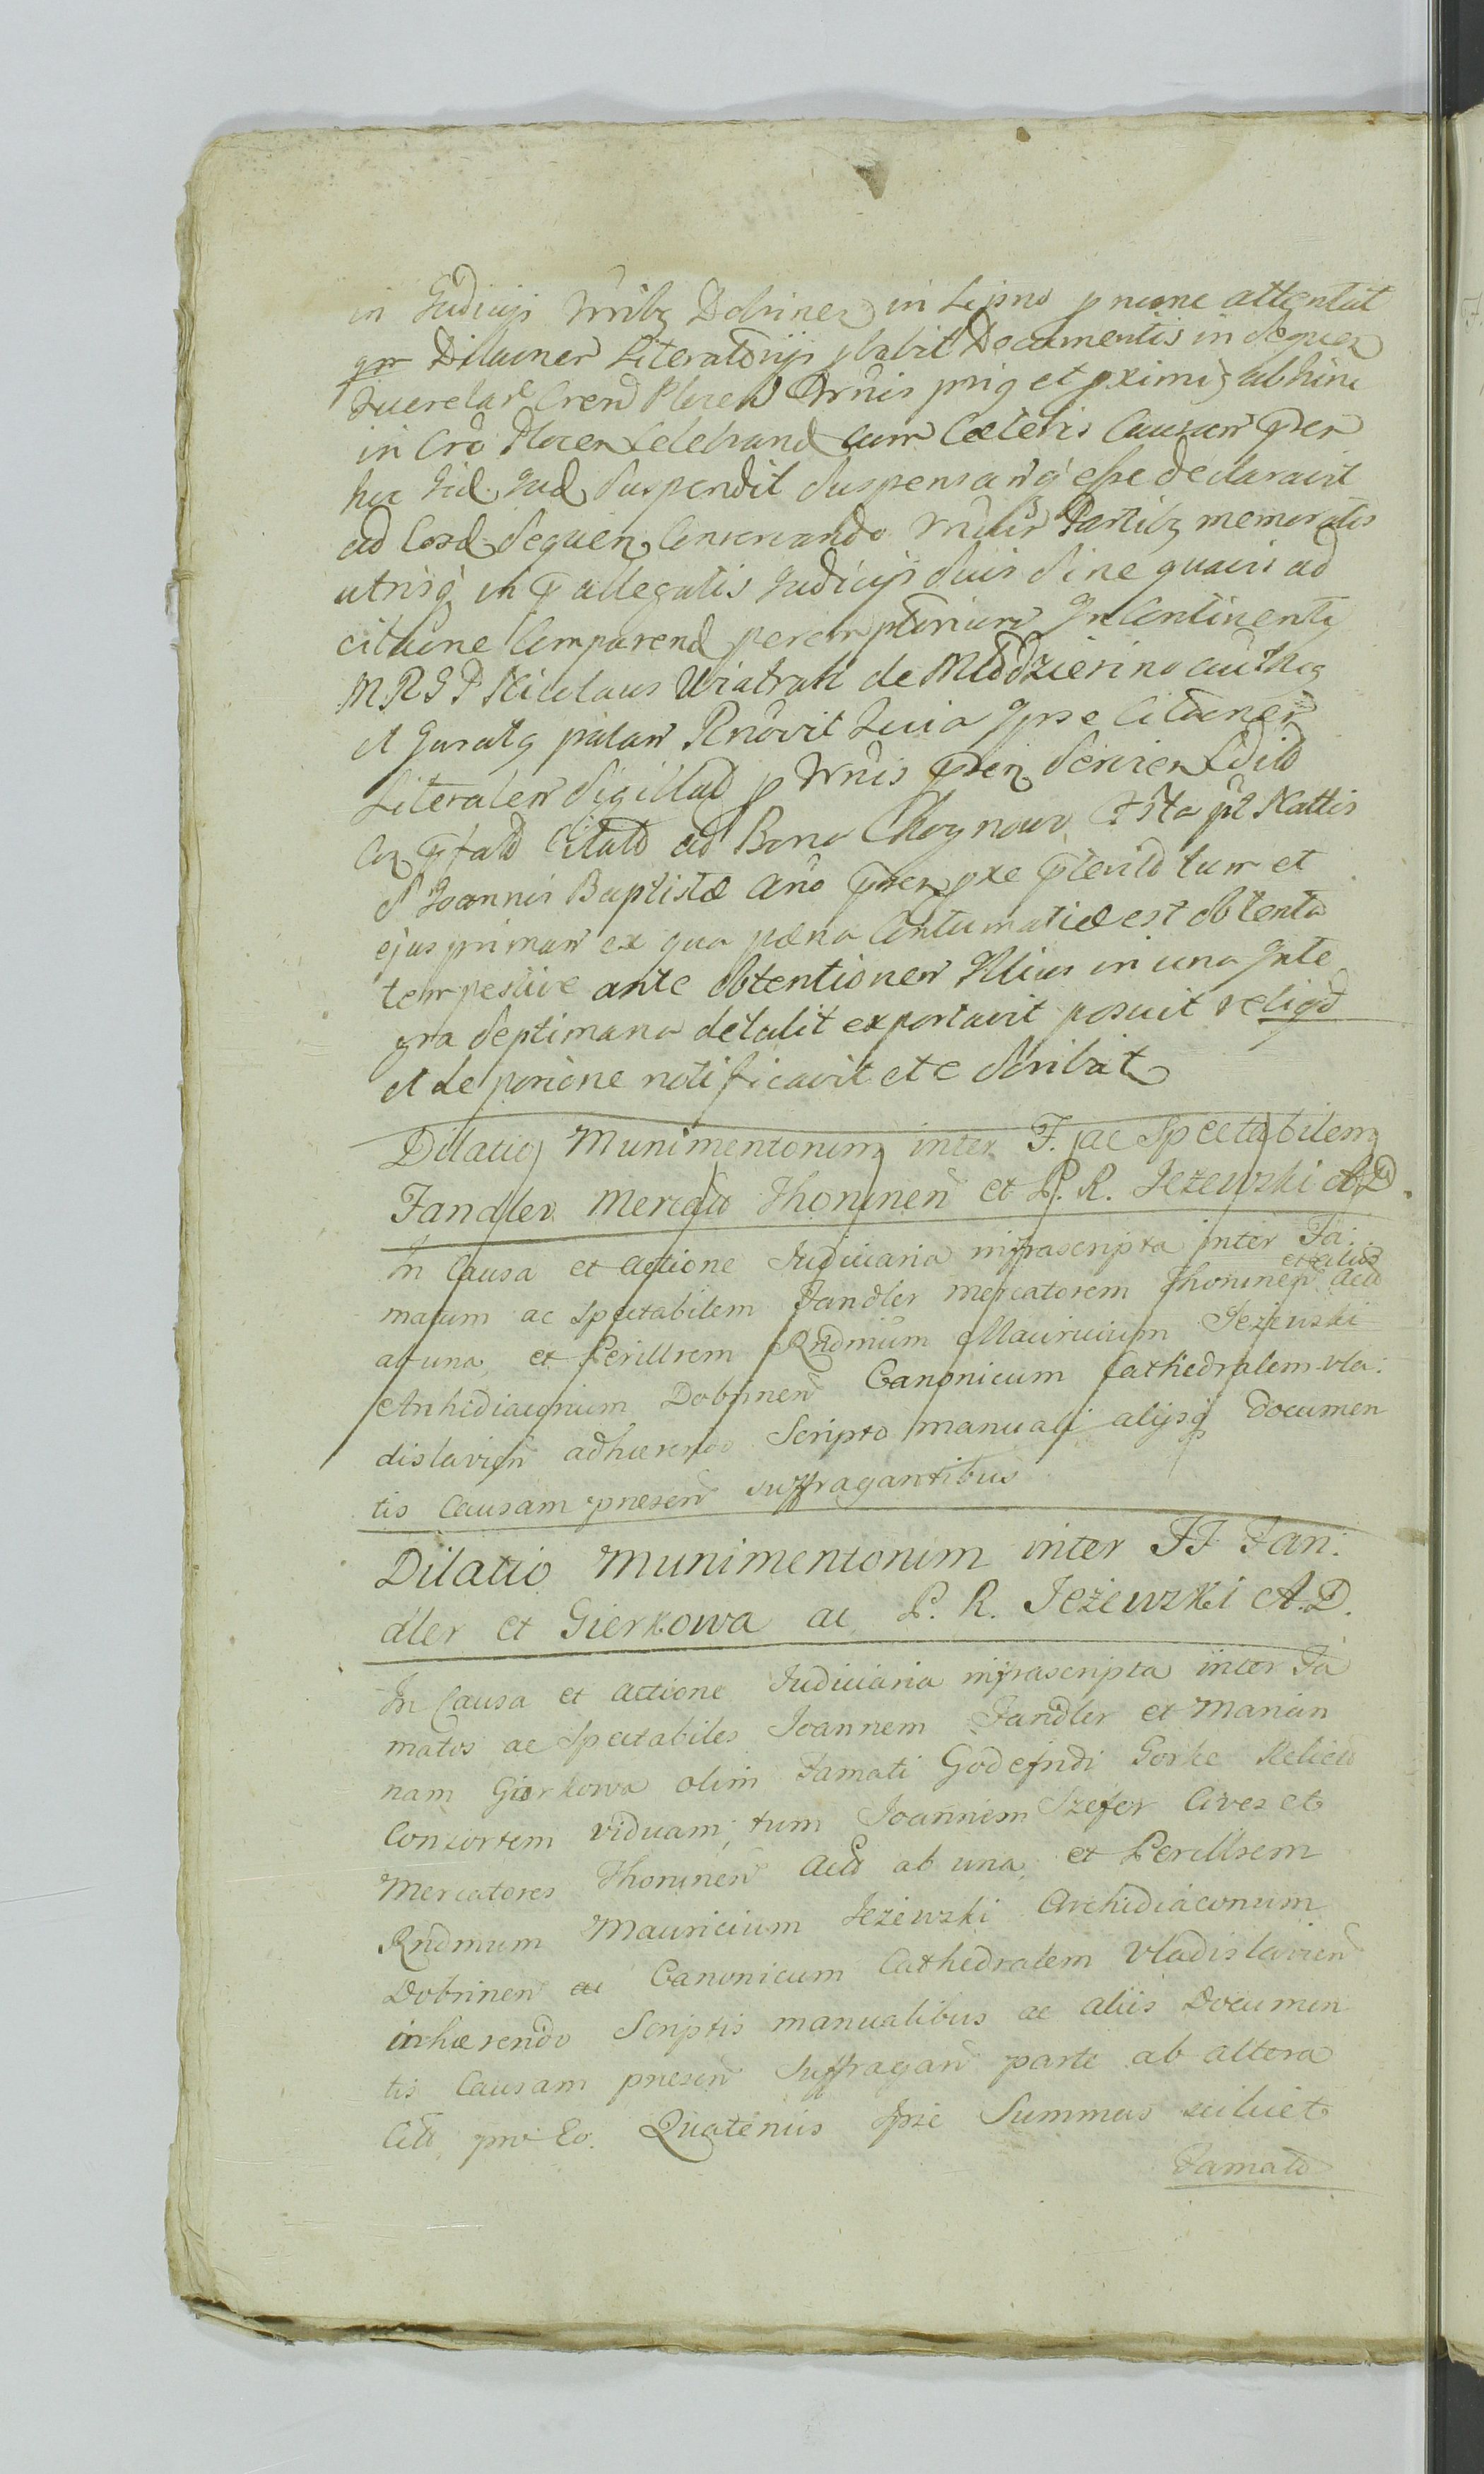 in Judicijs Trrilbȝ Dobrinen in Lipno p nunc attentat
qm Dilaōner Literatorijs Documentis in Sequen
Querelar Cren Plocen Trnis et pximis abhinc
in Cro Plocen Celebrand cum Cæteris Causam pñ
hoc Jud Suspendit Suspensamq́ esse declaravit
ad Cad Sequen Conservando Partibȝ memoratis
utrisq́ in pallegatis Judicijs Suis Sine quavis ad
citaōne Comparend peremptorium In Continenti
MRGD Nicolaus Wiatrak de Młodzieiino authꝯ
et Juratꝯ palam Rnovit Quia Ipse Citaōnem
Literalem Sigillad p Trnis pñ Servien Edild
p fatd Citatd ad Bona Chognowo Nattis
S Joannis Baptistæ Año pñ pxe pterild tum et
ejus primam ex qua pæna Contumatiæ est obtenta
tempestive ante obtentionem Illius in una Inte
gra Septimana detulit exportavit posuit reliqd
et de poriōne notificavit etc Scribat
Dilatio Munimentorum inter F. ac Spectabilem
Fandler Mercato Thorunen et P. R. Jeżewski AD.
In Causa et actione Judiciaria infrascripta inter Fa:
matum ac Spectabilem Fandler mercatorem Thorunen et alios Acto
ab una, et Perillrem Rndmum Mauricium Jeżewski
Archidiaconum Dobrinen Canonicum Cathedralem Vla:
dislavien adhærendo Scripto manuali alijsq́ Documen
tis Causam præsen suffragantibus
Dilatio Munimentorum inter FF Fan:
dler et Gierkowa ac P. R. Jeżewski A.D.
In Causa et actione Judiciaria infrascripta inter Fa
matos ac Spectabiles Joannem Fandler et Marian
nam Gierkowa olim Famati Godefridi Gorke Relicto
Consortem viduam, tum Joannem Szefer Cives et
Mercatores Thorunen Acto ab una, et Perillrem
Rndmum Mauricium Jeżewski Archidiaconum
Dobrinen ac Canonicum Cathedralem Vladislavien
inhærendo Scriptis manualibus ac aliis Documen
tis Causam præsen Suffragan parte ab altera
Citto, pro Eo. Quatenus Ipse Summas scilicet
Famato